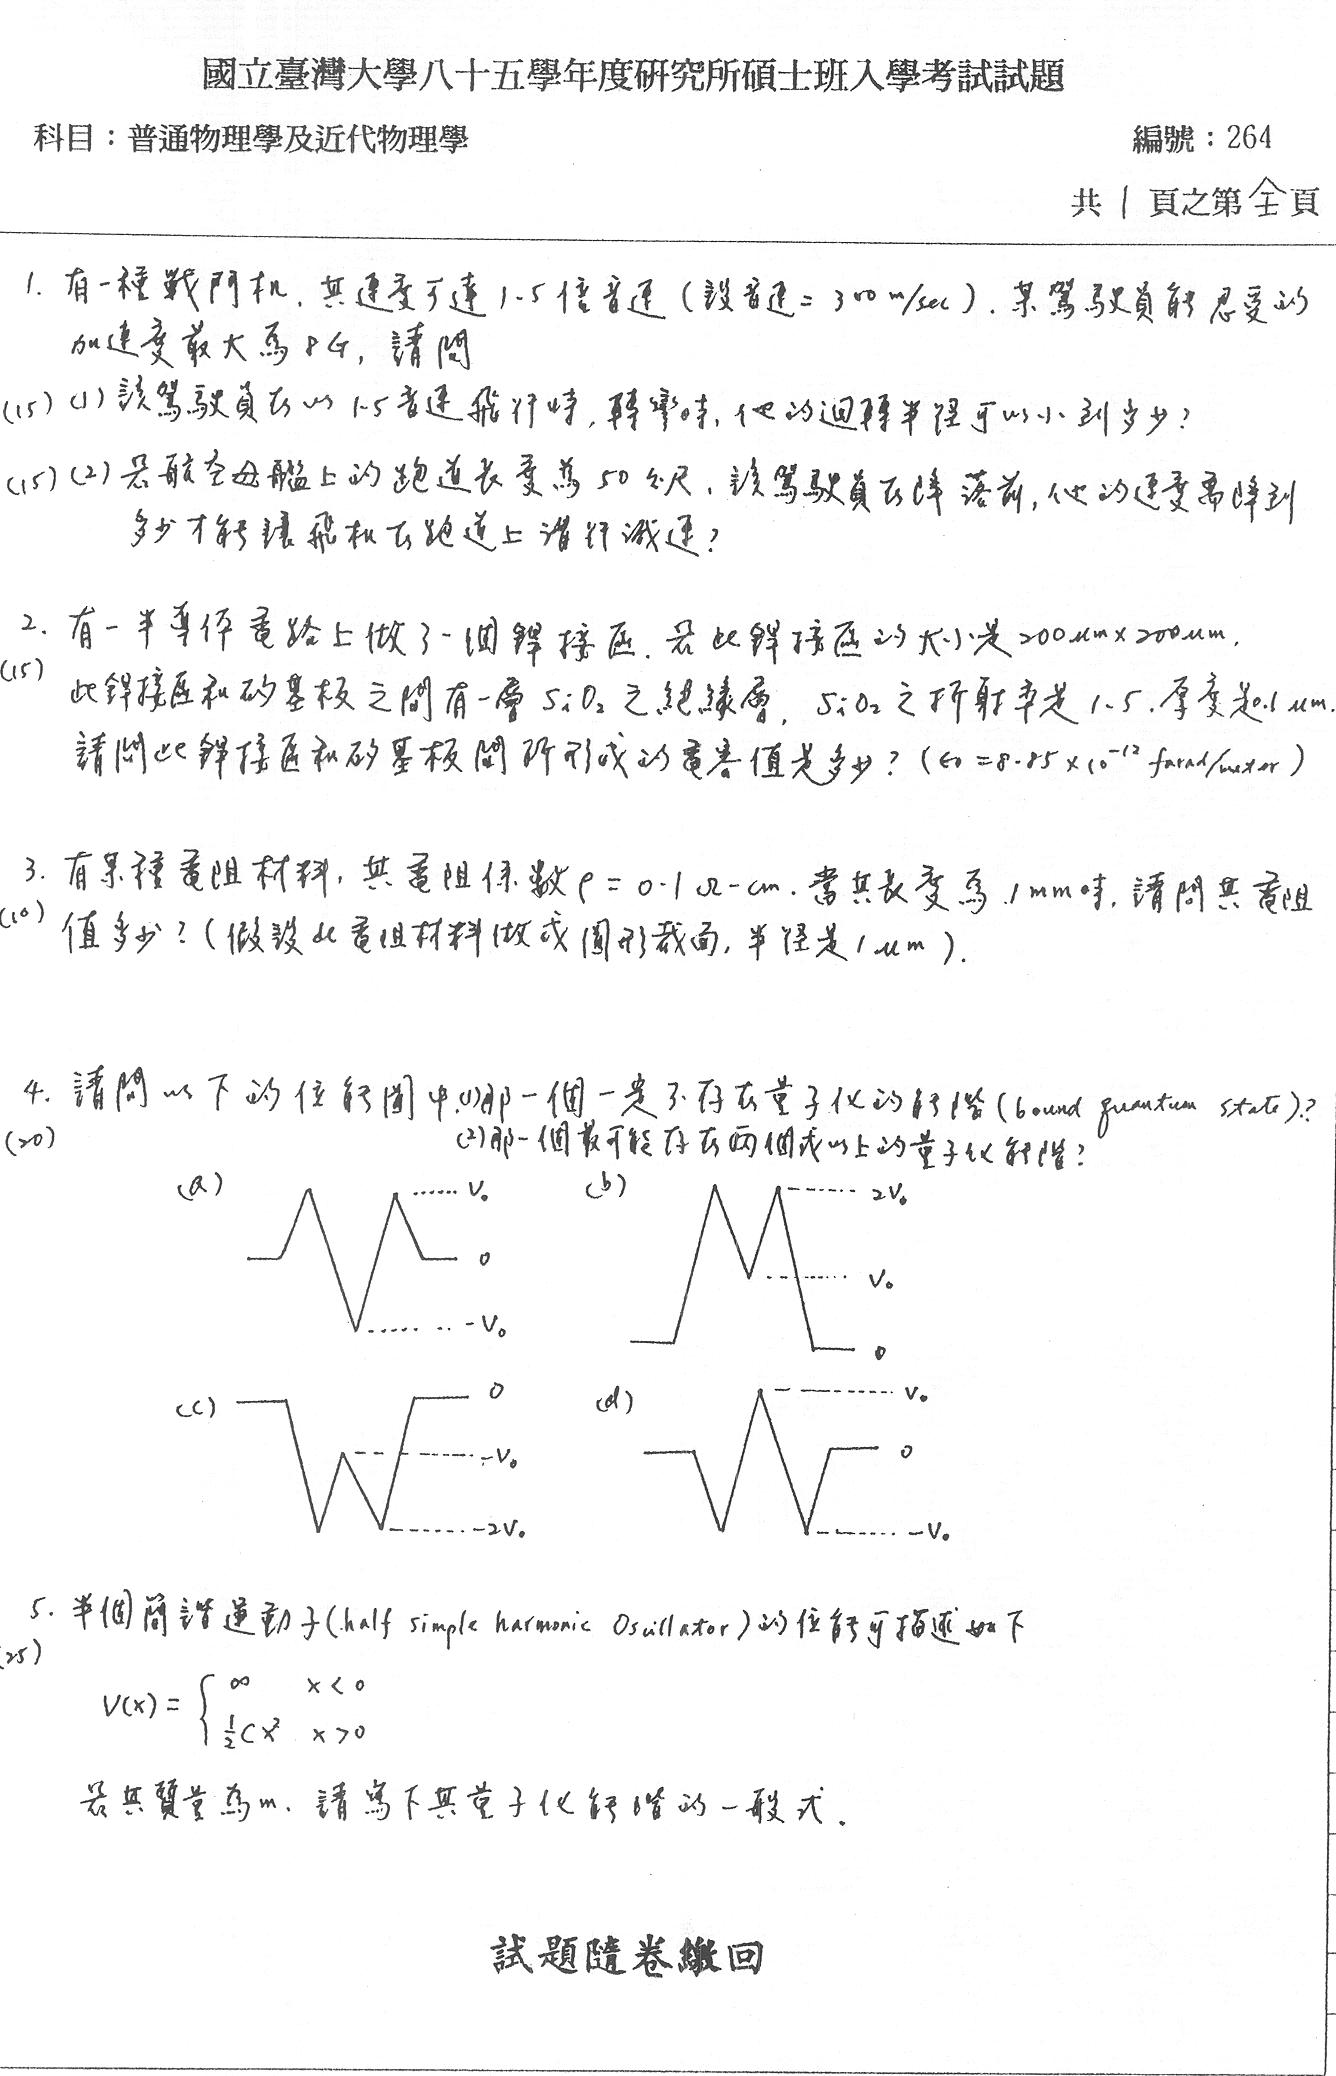 國立臺灣大學八十五學年度研究所碩士班入學考試試題
科目：普通物理學及近代物理學
編號：264
共 1 頁之第 全 頁
1. 有一種戰鬥机，其速度可達1.5倍音速（設音速=300 m/sec）. 某駕駛員能忍受的
加速度最大為8G，請問
(15) (1) 該駕駛員在以1.5音速飛行時，轉彎時，他的迴轉半徑可以小到多少？
(15) (2) 若航空母艦上的跑道長度為50公尺，該駕駛員在降落前，他的速度需降到
多少才能讓飛机在跑道上進行減速？
2. 有一半導体電路上做了一個銲接區. 若此銲接區的大小是200μm×200μm,
(15)
此銲接區和矽基板之間有一層SiO₂之絕緣層, SiO₂之折射率是1.5. 厚度是0.1μm.
請問此銲接區和矽基板間所形成的電容值是多少？（ε0=8.85×10⁻¹² farad/meter）
3. 有某種電阻材料，其電阻係數ρ=0.1Ω-cm. 當其長度為1mm時，請問其電阻
(10) 值多少？（假設此電阻材料做成圓形截面，半徑是1μm）.
4. 請問以下的位能圖中(1)那一個一定不存在量子化的能階(bound quantum state)?
(20)
(2)那一個最可能存在兩個或以上的量子化能階?
(a)
V₀
0
-V₀
(b)
2V₀
V₀
0
(c)
0
-V₀
-2V₀
(d)
V₀
0
-V₀
5. 半個簡諧運動子(half simple harmonic Oscillator)的位能可描述如下
(25)
V(x) = { ∞ x<0
½Cx² x>0
若其質量為m. 請寫下其量子化能階的一般式.
試題隨卷繳回